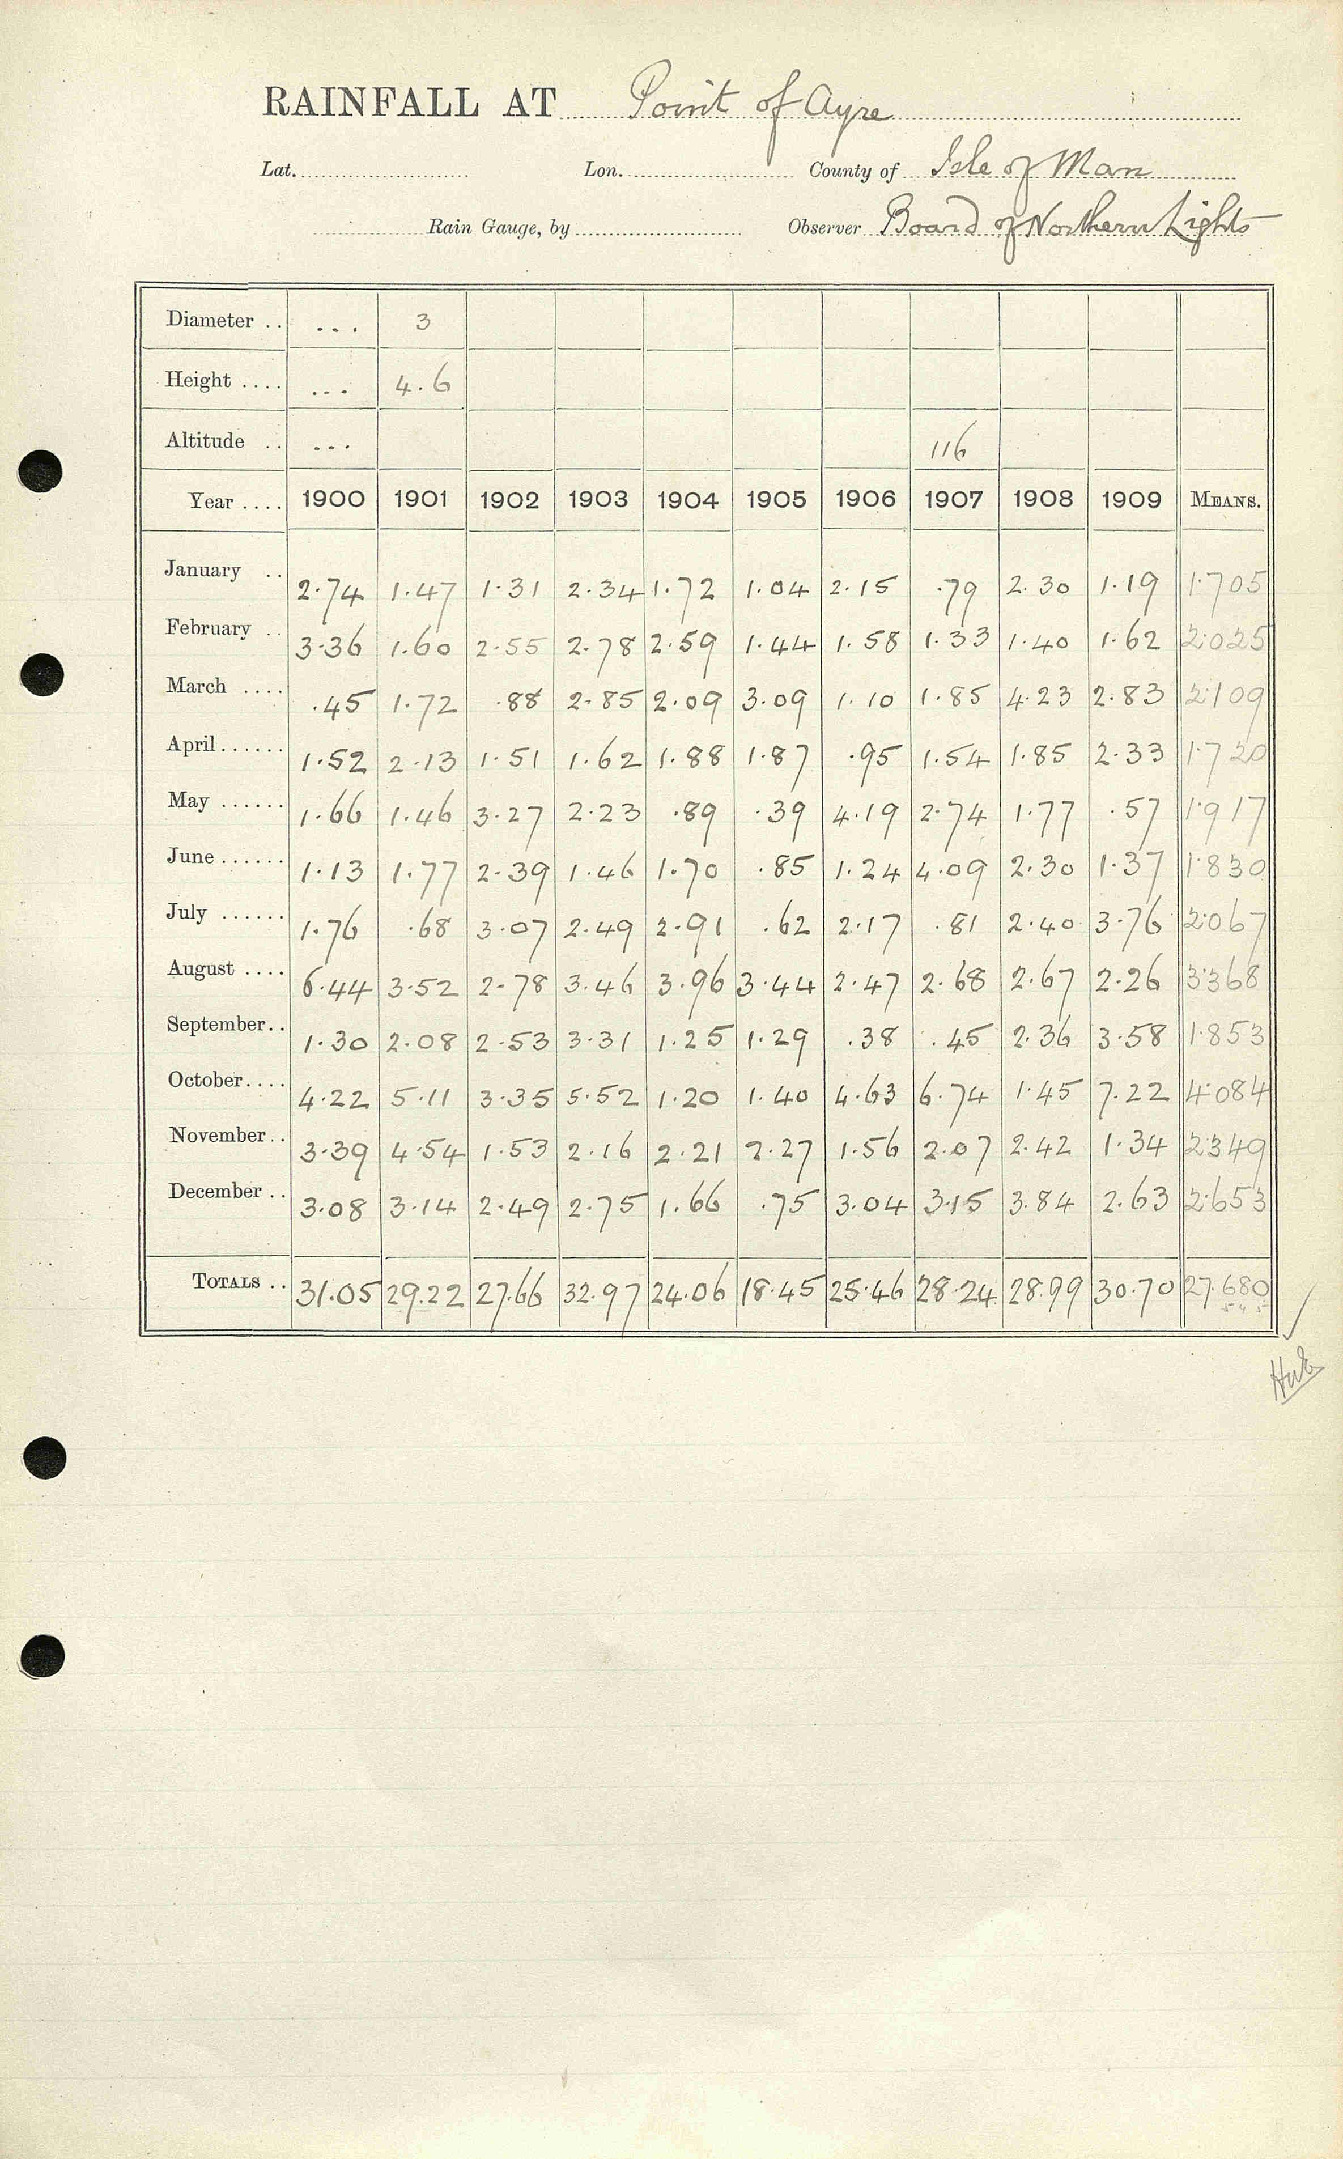 RAINFALL AT Point of Ayre
Lat. Lon. County of Isle of Man
Rain Gauge, by Observer Board of Northern Lights
Diameter .. ... 3
Height .... ... 4.6
Altitude .. ... 116
Year .... 1900 1901 1902 1903 1904 1905 1906 1907 1908 1909 MEANS.
January .. 2.74 1.47 1.31 2.34 1.72 1.04 2.15 .79 2.30 1.19 1.705
February .. 3.36 1.60 2.55 2.78 2.59 1.44 1.58 1.33 1.40 1.62 2.025
March .... .45 1.72 .88 2.85 2.09 3.09 1.10 1.85 4.23 2.83 2.109
April ...... 1.52 2.13 1.51 1.62 1.88 1.87 .95 1.54 1.85 2.33 1.720
May ...... 1.66 1.46 3.27 2.23 .89 .39 4.19 2.74 1.77 .57 1.917
June ...... 1.13 1.77 2.39 1.46 1.70 .85 1.24 4.09 2.30 1.37 1.830
July ...... 1.76 .68 3.07 2.49 2.91 .62 2.17 .81 2.40 3.76 2.067
August .... 6.44 3.52 2.78 3.46 3.96 3.44 2.47 2.68 2.67 2.26 3.368
September .. 1.30 2.08 2.53 3.31 1.25 1.29 .38 .45 2.36 3.58 1.853
October .... 4.22 5.11 3.35 5.52 1.20 1.40 4.63 6.74 1.45 7.22 4.084
November .. 3.39 4.54 1.53 2.16 2.21 2.27 1.56 2.07 2.42 1.34 2.349
December .. 3.08 3.14 2.49 2.75 1.66 .75 3.04 3.15 3.84 2.63 2.653
TOTALS .. 31.05 29.22 27.66 32.97 24.06 18.45 25.46 28.24 28.99 30.70 27.680